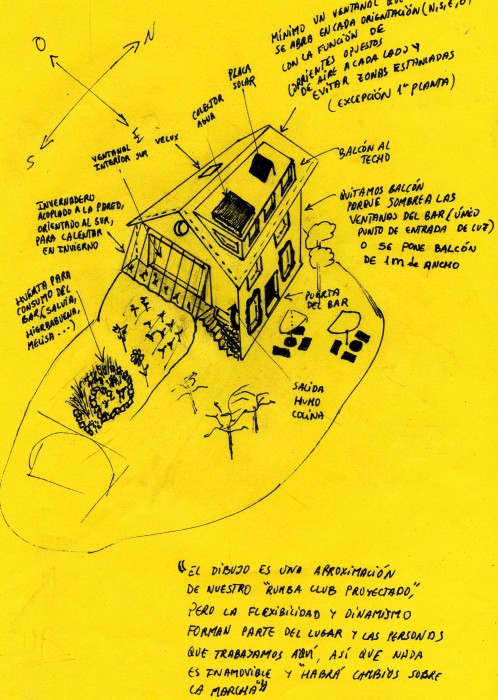 MÍNIMO UN VENTANAL QUE
SE ABRA EN CADA ORIENTACIÓN (N,S,E,O)
CON LA FUNCIÓN DE
CORRIENTES OPUESTAS
DE AIRE A CADA LADO Y
EVITAR ZONAS ESTANCADAS
(EXCEPCIÓN 1ª PLANTA)
O
N
S
E
PLACA
SOLAR
COLECTOR
AGUA
VELUX
VENTANAL
INTERIOR SUR
BALCÓN AL
TECHO
INVERNADERO
ACOPLADO A LA PARED,
ORIENTADO AL SUR,
PARA CALENTAR
EN INVIERNO
QUITAMOS BALCÓN
PORQUE SOMBREA LAS
VENTANAS DEL BAR (ÚNICO
PUNTO DE ENTRADA DE LUZ)
O SE PONE BALCÓN
DE 1m DE ANCHO
HUERTA PARA
CONSUMO DEL
BAR (SALVIA,
HIERBABUENA,
MELISA...)
PUERTA
DEL BAR
SALIDA
HUMO
COCINA
"EL DIBUJO ES UNA APROXIMACIÓN
DE NUESTRO "RUMBA CLUB PROYECTADO",
PERO LA FLEXIBILIDAD Y DINAMISMO
FORMAN PARTE DEL LUGAR Y LAS PERSONAS
QUE TRABAJAMOS AQUÍ, ASÍ QUE NADA
ES INAMOVIBLE Y "HABRÁ CAMBIOS SOBRE
LA MARCHA""